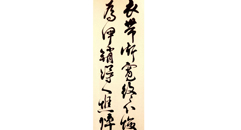 衣帶漸寬終不悔
為伊銷得人憔悴